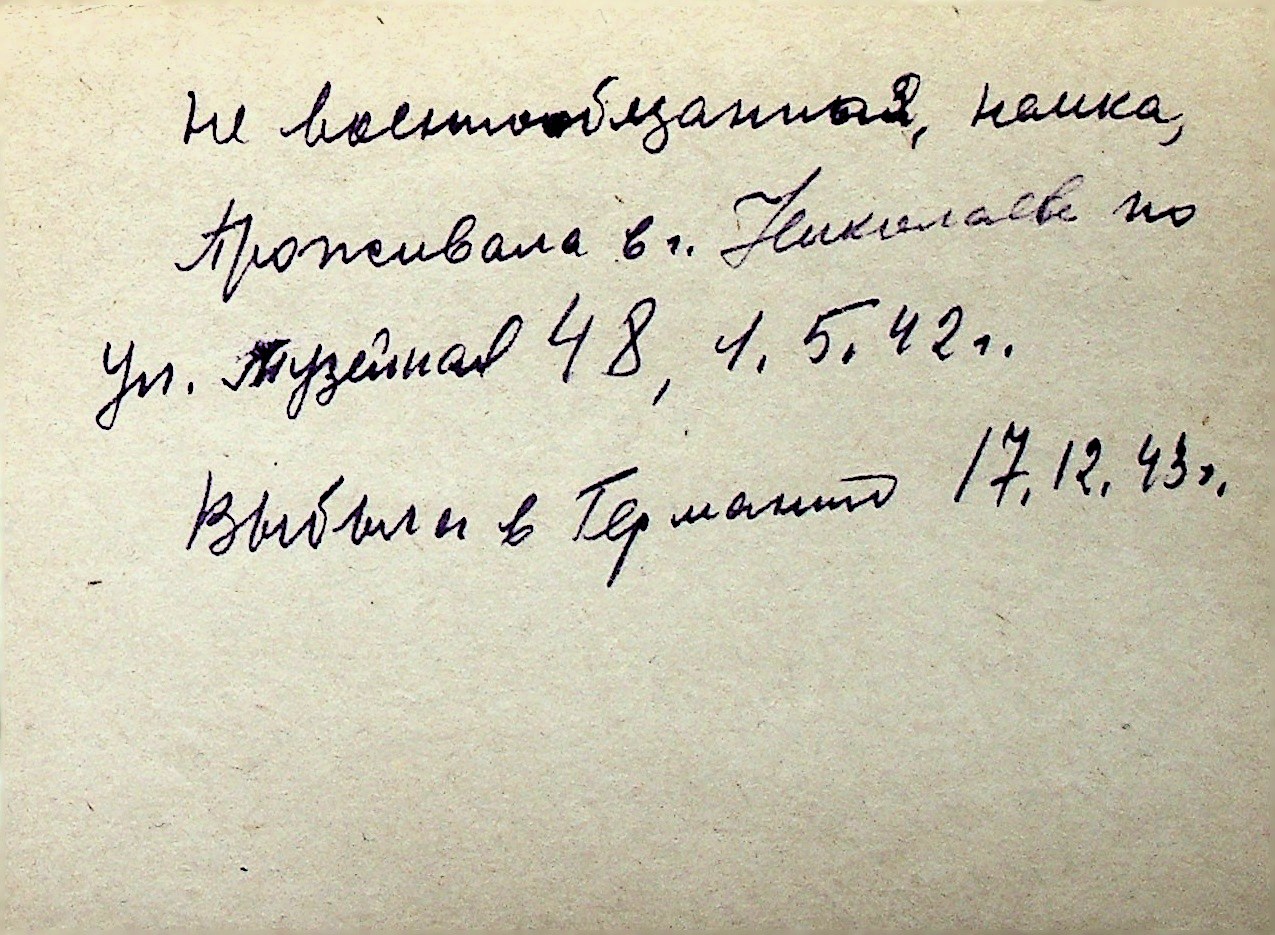 не военнообязанная, немка,
Проживала в г. Николаеве по
ул. Музейная 48, 1.5.42г.
Выбыла в Германию 17.12.43г.